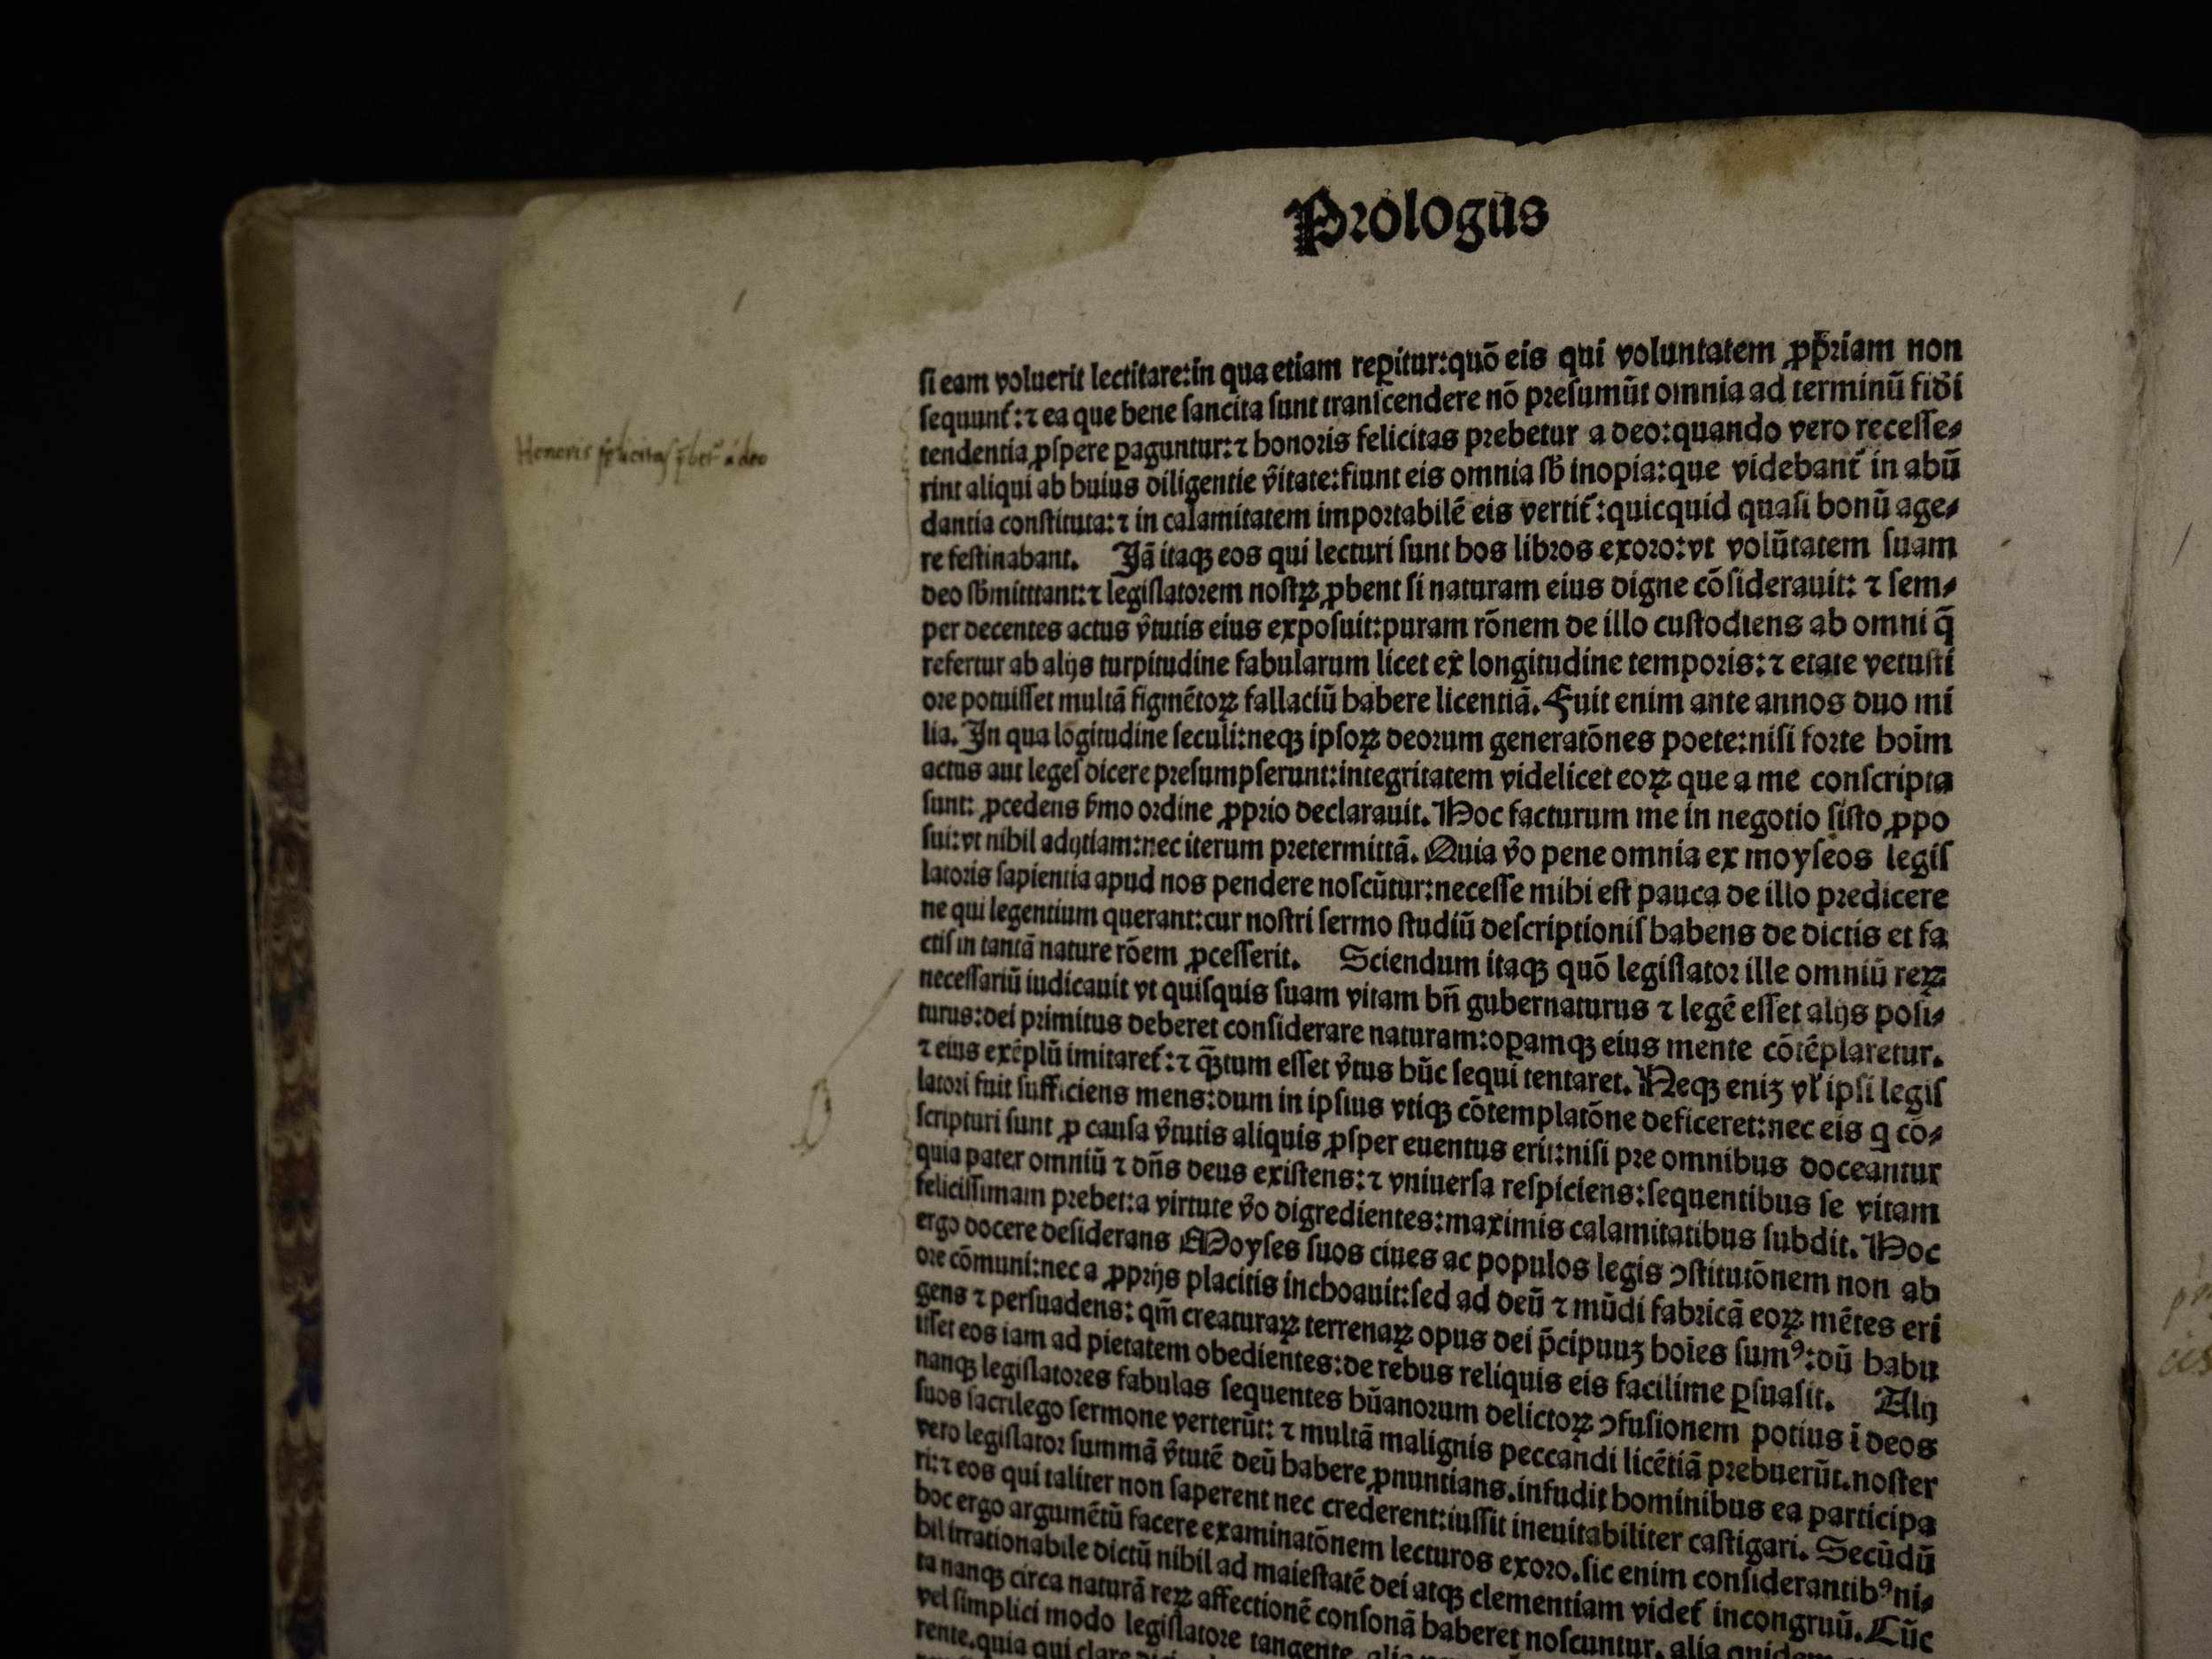 Prologus
si eam voluerit lectitare:in qua etiam repitur:quō eis qui voluntatem ꝓpriam non
sequunt̃:⁊ ea que bene sancita sunt transcendere nō presumūt omnia ad terminū fiđi
tendentia ꝓspere ꝑaguntur:⁊ honoris felicitas prebetur a deo:quando vero recesse⸗
Honoris felicitas a deo
rint aliqui ab huius diligentie v̑itate:fiunt eis omnia sb̄ inopia:que videbant̃ in abū
dantia constituta:⁊ in calamitatem importabilē eis vertit̃:quicquid quasi bonū age⸗
re festinabant. Jā itaqꝫ eos qui lecturi sunt hos libros exoro:vt volūtatem suam
deo sb̄mitttant:⁊ legislatorem nostrꝝ ꝓbent si naturam eius digne cōsiderauit: ⁊ sem⸗
per decentes actus v̑tutis eius exposuit:puram rōnem de illo custodiens ab omni q̄
refertur ab alijs turpitudine fabularum licet ex̄ longitudine temporis:⁊ etate vetusti
ore potuisset multā figmētoꝝ fallaciū habere licentiā. Fuit enim ante annos duo mi
lia. Jn qua lōgitudine seculi:neqꝫ ipsoꝝ deorum generatōnes poete:nisi forte hoim
actus aut leges dicere presumpserunt:integritatem videlicet eoꝝ que a me conscripta
sunt: ꝓcedens ẜmo ordine ꝓprio declarauit. Hoc facturum me in negotio sisto ꝓpo
sui:vt nihil adijtiam:nec iterum pretermittā. Quia v̑o pene omnia ex moyseos legis
latoris sapientia apud nos pendere noscūtur:necesse mihi est pauca de illo predicere
ne qui legentium querant:cur nostri sermo studiū descriptionis habens de dictis et fa
ctis in tantā nature rōem ꝓcesserit. Sciendum itaqꝫ quō legislator ille omniū reꝝ
necessariū iudicauit vt quisquis suam vitam bn̄ gubernaturus ⁊ legē esset alijs posi⸗
turus:dei primitus deberet considerare naturam:oꝑamqꝫ eius mente cōtēplaretur.
⁊ eius exēplū imitaret̃:⁊ q̄ꝫtum esset v̑tus hūc sequi tentaret. Neqꝫ eniꝫ vl̄ ipsi legis
latori fuit sufficiens mens:dum in ipsius vtiqꝫ cōtemplatōne deficeret:nec eis q cō⸗
scripturi sunt ꝓ causa v̑tutis aliquis ꝓsper euentus erit:nisi pre omnibus doceantur
quia pater omniū ⁊ dn̄s deus existens:⁊ vniuersa respiciens:sequentibus se vitam
felicissimam prebet:a virtute v̑o digredientes:maximis calamitatibus subdit. Hoc
ergo docere desiderans Moyses suos ciues ac populos legis ↄstitutōnem non ab
ore cōmuni:nec a ꝓprijs placitis inchoauit:sed ad deū ⁊ mūdi fabricā eoꝝ mētes eri
gens ⁊ persuadens: qm̄ creaturaꝝ terrenaꝝ opus dei p̄cipuuꝫ hoies sumꝰ:dū habu
isset eos iam ad pietatem obedientes:de rebus reliquis eis facilime ꝑsuasit. Alij
nanqꝫ legislatores fabulas sequentes hūanorum delictoꝝ ↄfusionem potius ī deos
suos sacrilego sermone verterūt: ⁊ multā malignis peccandi licētiā prebuerūt.noster
vero legislator summā v̑tutē deū habere ꝓnuntians.infudit hominibus ea participa
ri:⁊ eos qui taliter non saperent nec crederent:iussit ineuitabiliter castigari. Secūdū
hoc ergo argumētū facere examinatōnem lecturos exoro.sic enim considerantibꝰ ni⸗
hil irrationabile dictū nihil ad maiestatē dei atqꝫ clementiam videt̃ incongruū. Cūc
ta nanqꝫ circa naturā reꝝ affectionē consonā haberet noscuntur. alia quidem
vel simplici modo legislatore tangente.
rente.quia qui clare